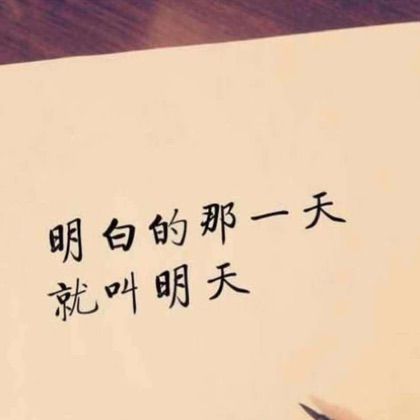 明白的那一天
就叫明天